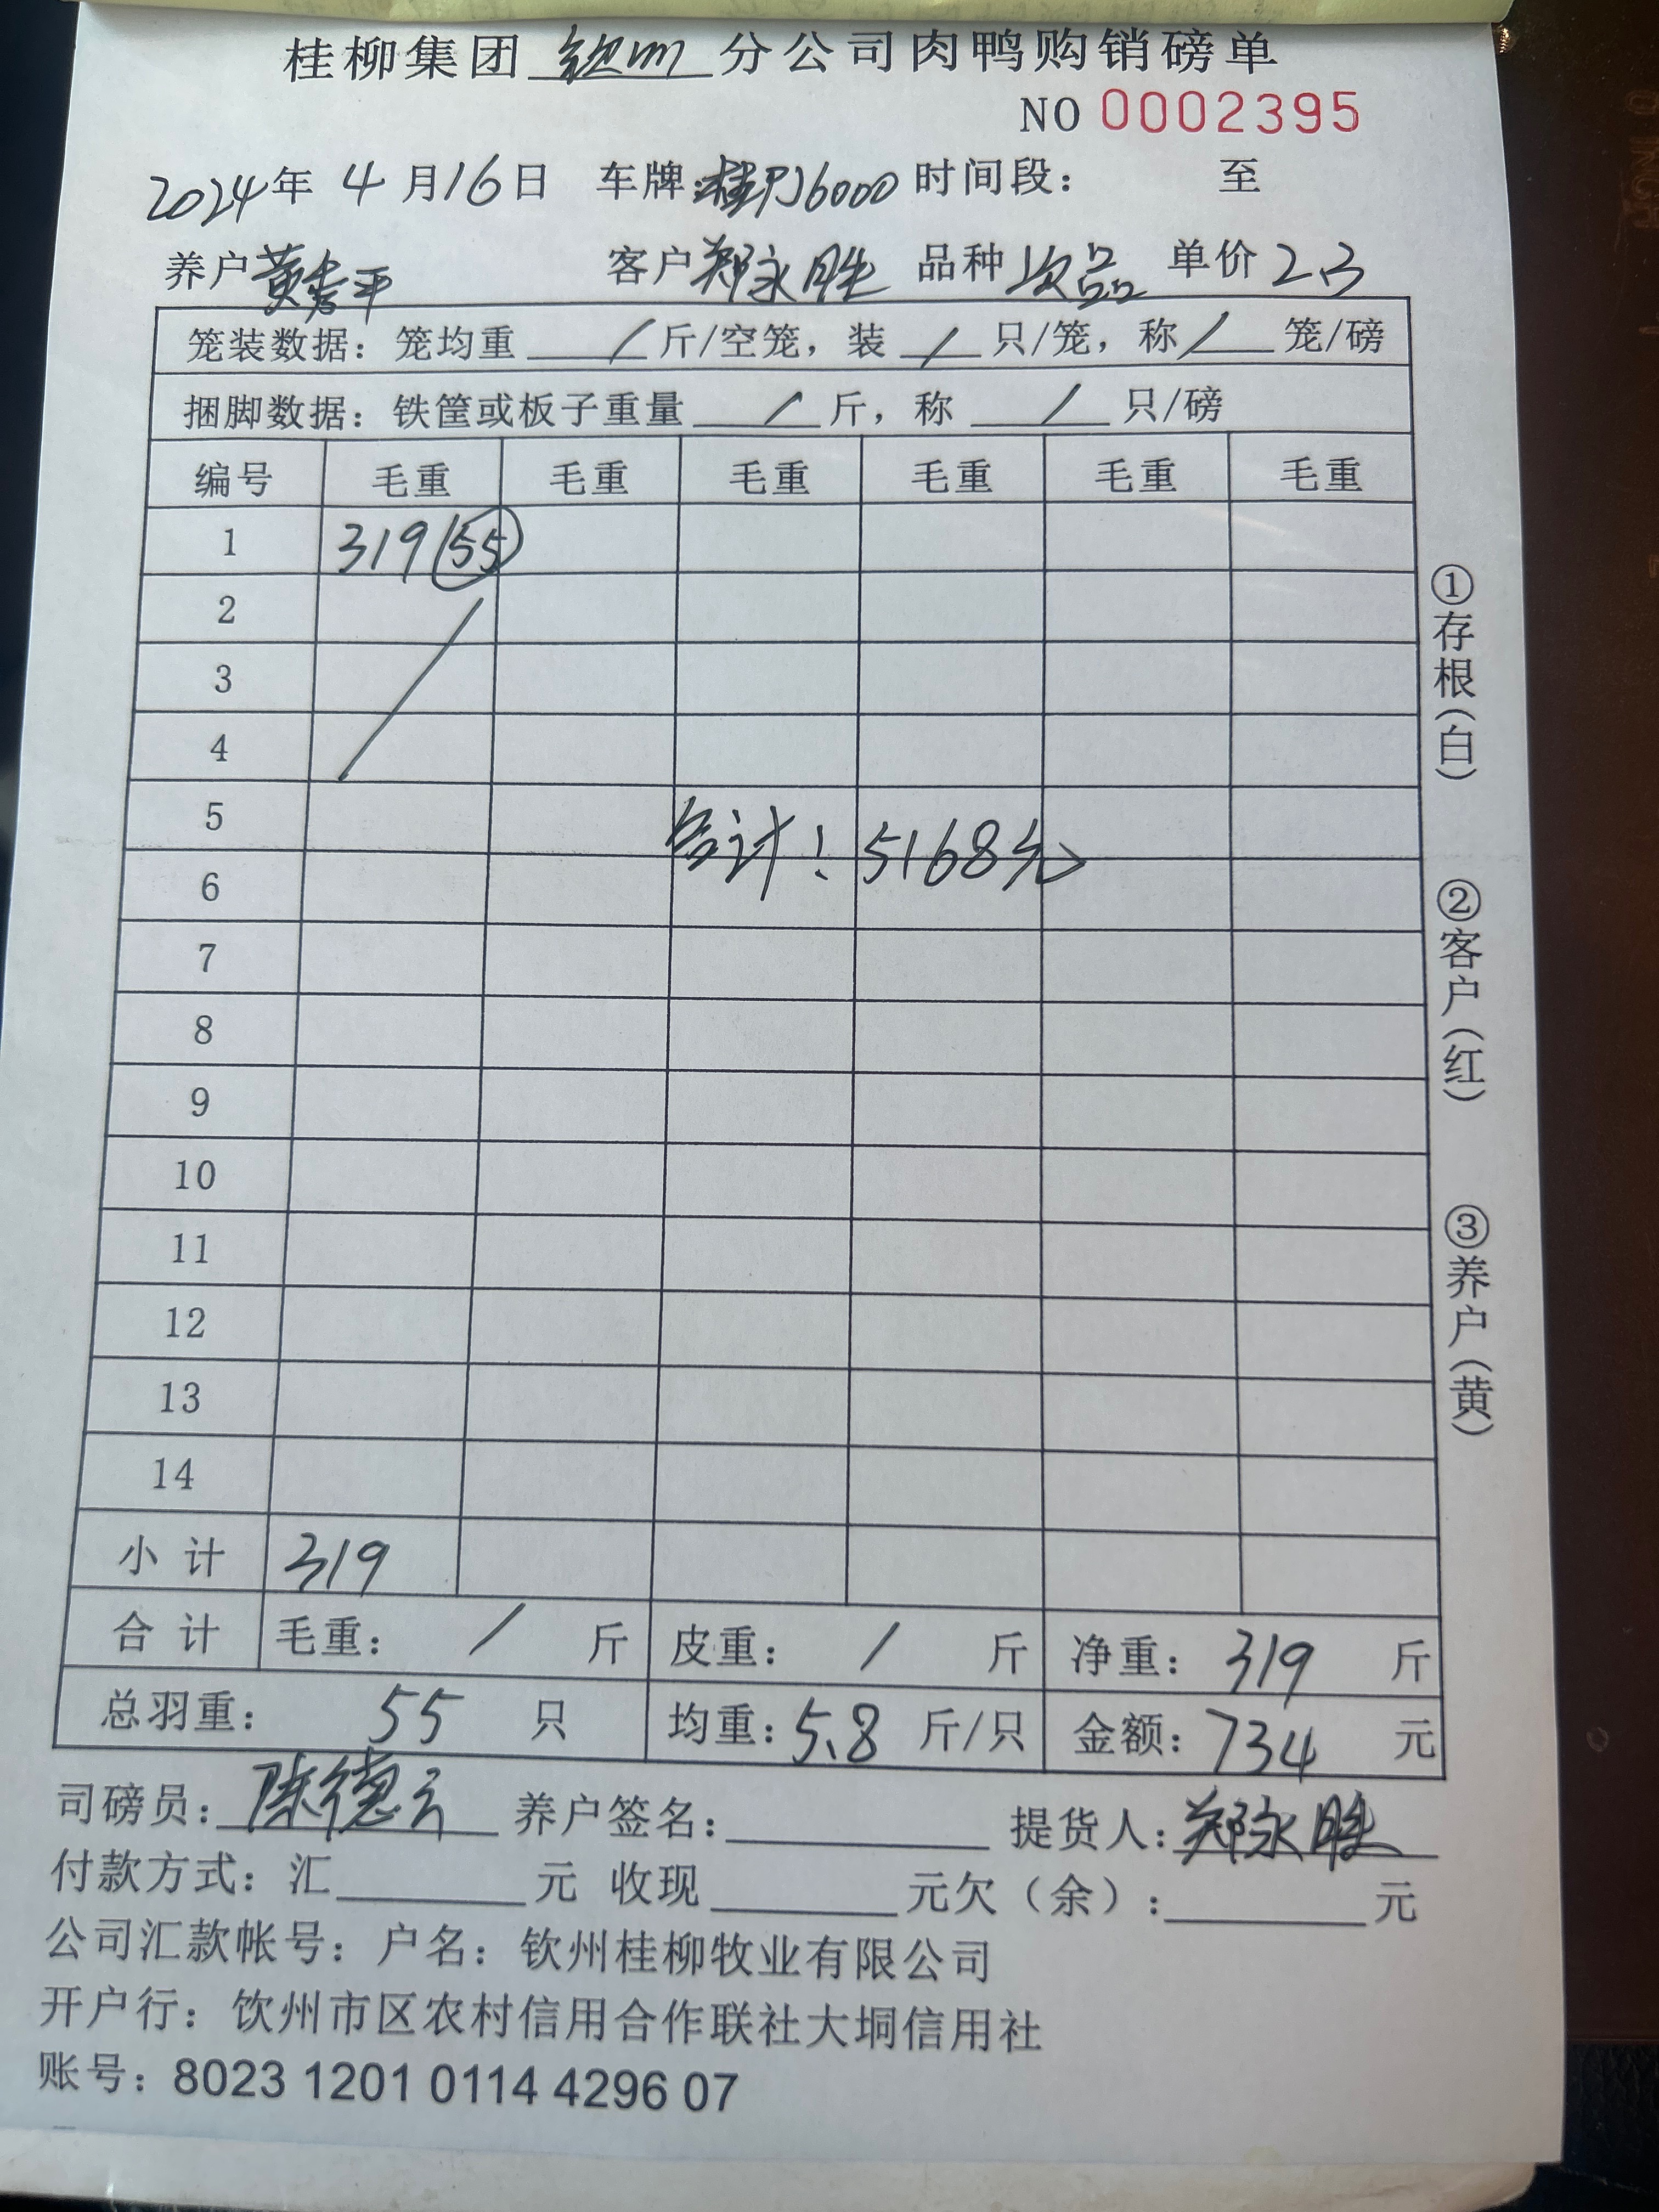 桂柳集团 钦州 分公司肉鸭购销磅单
NO 0002395
2024年 4月16日 车牌:桂 J6000 时间段: 至
养户 黄秀平 客户 郑永胜 品种 次品 单价 2.3
笼装数据: 笼均重 / 斤/空笼, 装 / 只/笼, 称 / 笼/磅
捆脚数据: 铁筐或板子重量 / 斤, 称 / 只/磅
编号 毛重 毛重 毛重 毛重 毛重 毛重
1 319 (55)
2
3
4
5
合计: 5168元
6
7
8
9
10
11
12
13
14
小计 319
合计 毛重: / 斤 皮重: / 斤 净重: 319 斤
总羽重: 55 只 均重: 5.8 斤/只 金额: 734 元
司磅员: 陈德云 养户签名: 提货人: 郑永胜
付款方式: 汇 元 收现 元欠(余): 元
公司汇款帐号: 户名: 钦州桂柳牧业有限公司
开户行: 钦州市区农村信用合作联社大垌信用社
账号: 8023 1201 0114 4296 07
①存根(白)
②客户(红)
③养户(黄)